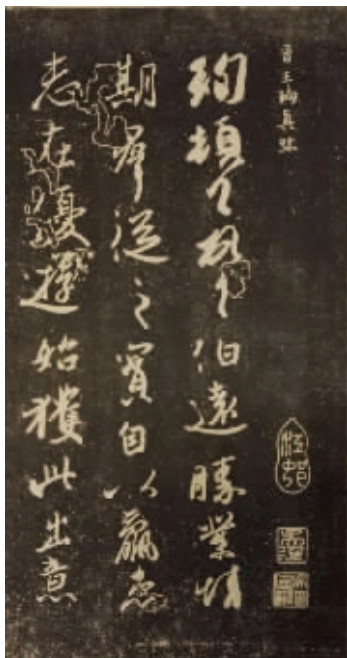 晉王珣真跡
江邨
珣頓首頓首伯遠勝業情
期羣從之寶自以羸患
志在優遊始獲此出意